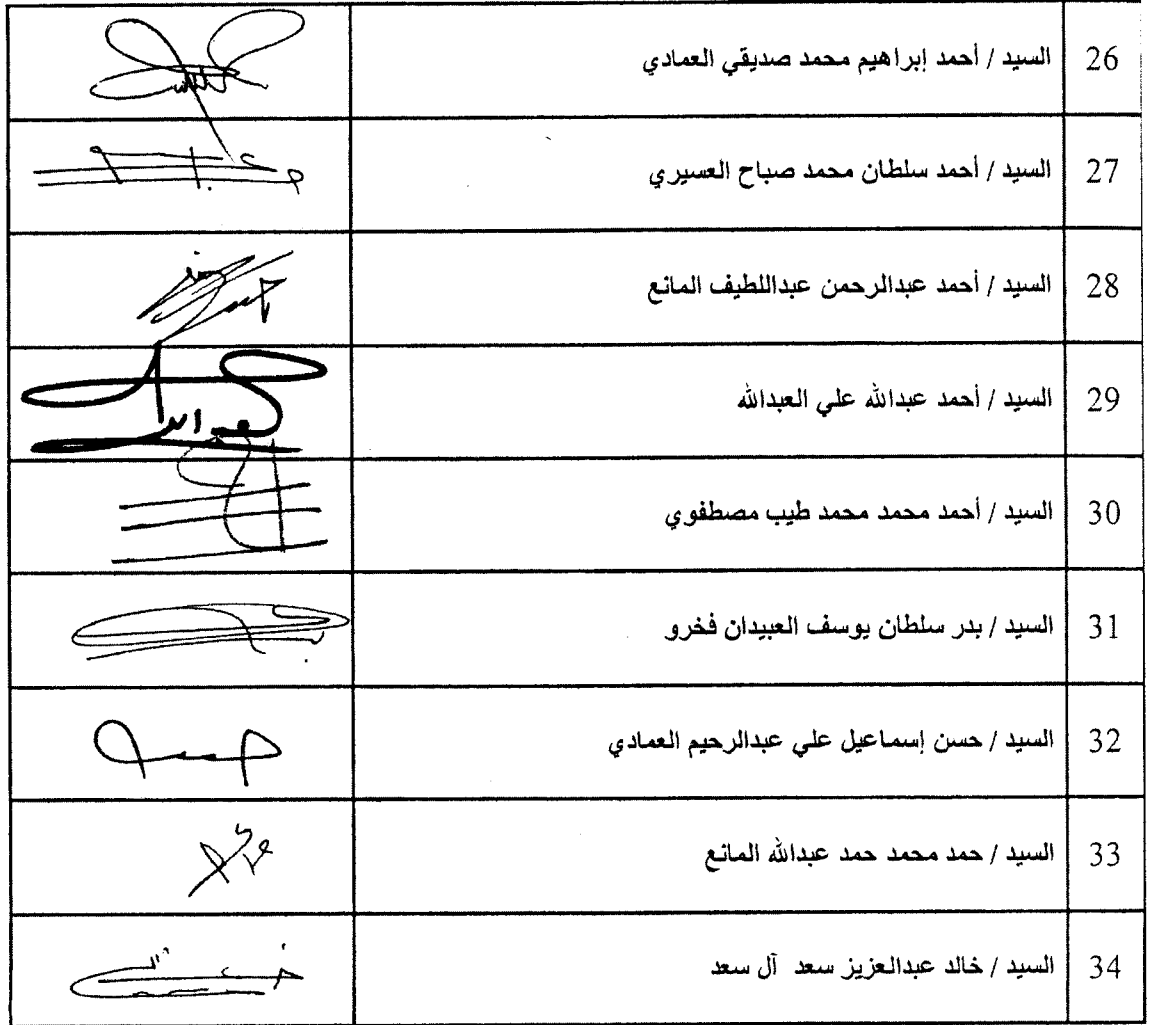 26 السيد / أحمد إبراهيم محمد صديقي العمادي
27 السيد / أحمد سلطان محمد صباح العسيري
28 السيد / أحمد عبدالرحمن عبداللطيف المانع
29 السيد / أحمد عبدالله علي العبدالله
30 السيد / أحمد محمد محمد طيب مصطفوي
31 السيد / بدر سلطان يوسف العبيدان فخرو
32 السيد / حسن إسماعيل علي عبدالرحيم العمادي
33 السيد / حمد محمد حمد عبدالله المانع
34 السيد / خالد عبدالعزيز سعد آل سعد